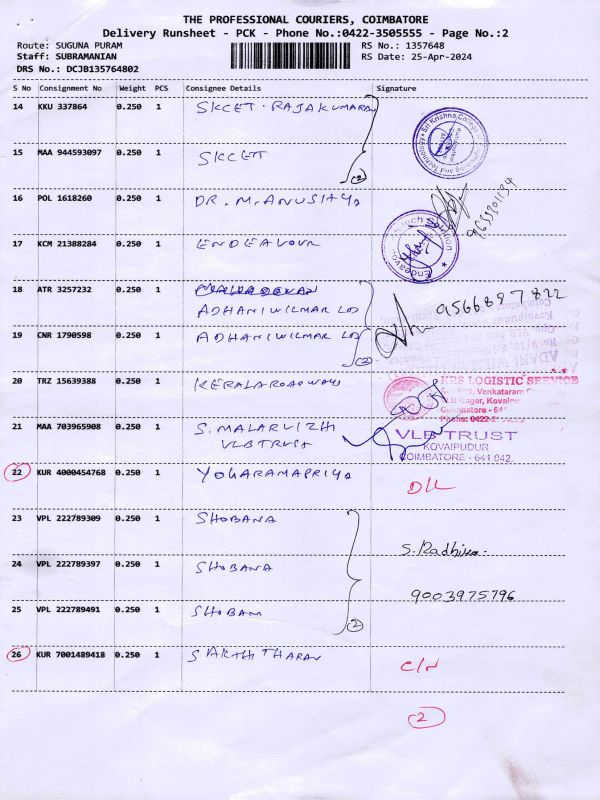 THE PROFESSIONAL COURIERS, COIMBATORE
Delivery Runsheet - PCK - Phone No.:0422-3505555 - Page No.:2
Route: SUGUNA PURAM
Staff: SUBRAMANIAN
DRS No.: DCJB135764802
RS No.: 1357648
RS Date: 25-Apr-2024
S No Consignment No Weight PCS Consignee Details Signature
14 KKU 337864 0.250 1 SKCET. RAJAKUMARAN
15 MAA 944593097 0.250 1 SKCET
(2)
16 POL 1618260 0.250 1 DR. M. ANUSHYA
17 KCM 21388284 0.250 1 ENDEAVOUR
18 ATR 3257232 0.250 1
ADHANI WILMAR LD 9566897822
19 CNR 1790598 0.250 1 ADHANI WILMAR LD
(2)
20 TRZ 15639388 0.250 1 KERALA ROADWAYS
KRS LOGISTIC SERVICE
21 MAA 703965908 0.250 1 S. MALARVIZHI
VLB TRUST
VLB TRUST
KOVAIPUDUR
COIMBATORE - 641 042.
22 KUR 4000454768 0.250 1 YOGARAMAPRIYA
D/L
23 VPL 222789309 0.250 1 SHOBANA
S. Radhika.
24 VPL 222789397 0.250 1 SHOBANA
9003975796
25 VPL 222789491 0.250 1 SHOBAN
(2)
26 KUR 7001489418 0.250 1 SAKTHI THARAN
C/N
(2)